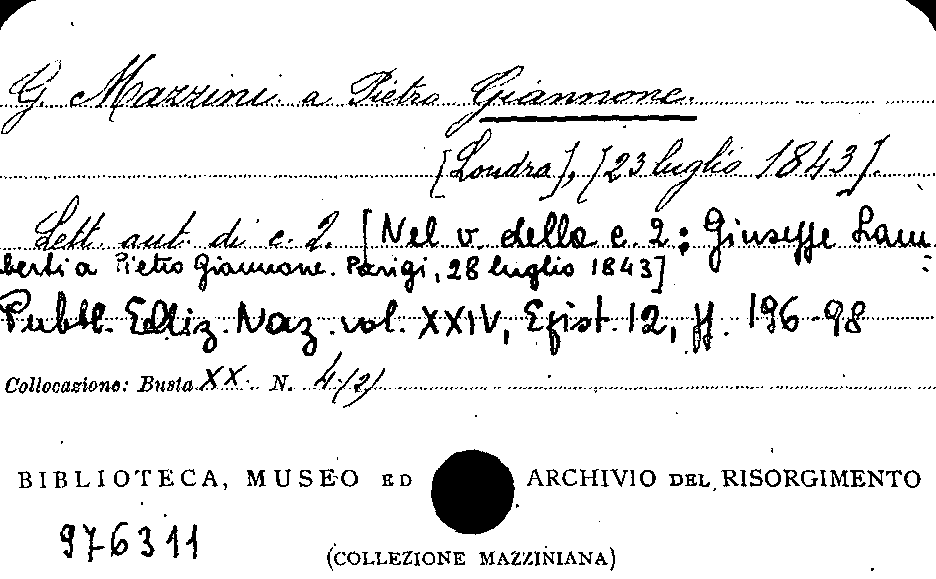 G. Mazzini a Pietro Giannone.
[Londra], [23 luglio 1843].
Lett. aut. di c. 2. [Nel v. della c. 2: Giuseppe Lam
berti a Pietro Giannone. Parigi, 28 luglio 1843]
Pubbl. Ediz. Naz. vol. XXIV, Epist. 12, pp. 196-98
Collocazione: Busta XX. N. 4 (2)
BIBLIOTECA, MUSEO ED ARCHIVIO DEL RISORGIMENTO
976311
(COLLEZIONE MAZZINIANA)